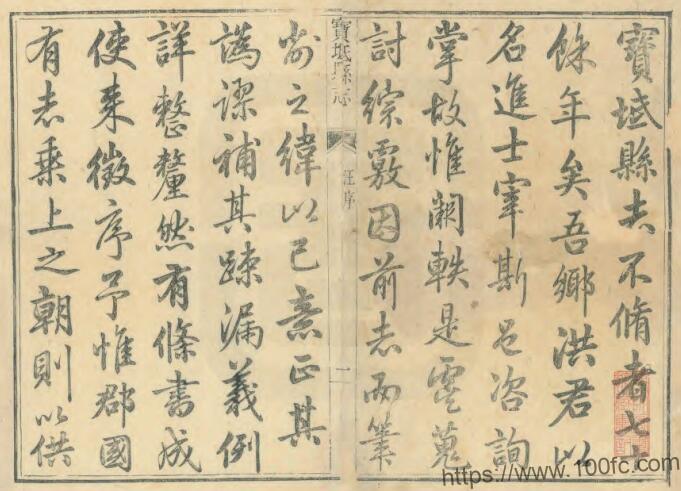 寶坻縣志不脩者七十
餘年矣吾鄉洪君以
名進士宰斯邑咨詢
掌故惟闕軼是虞蒐
討綜覈因前志而筆
寶坻縣志
汪序
一
削之緯以己意正其
譌謬補其踈漏義例
詳整釐然有條書成
使來徵序予惟郡國
有志乘上之朝則以供
https://www.100fc.com